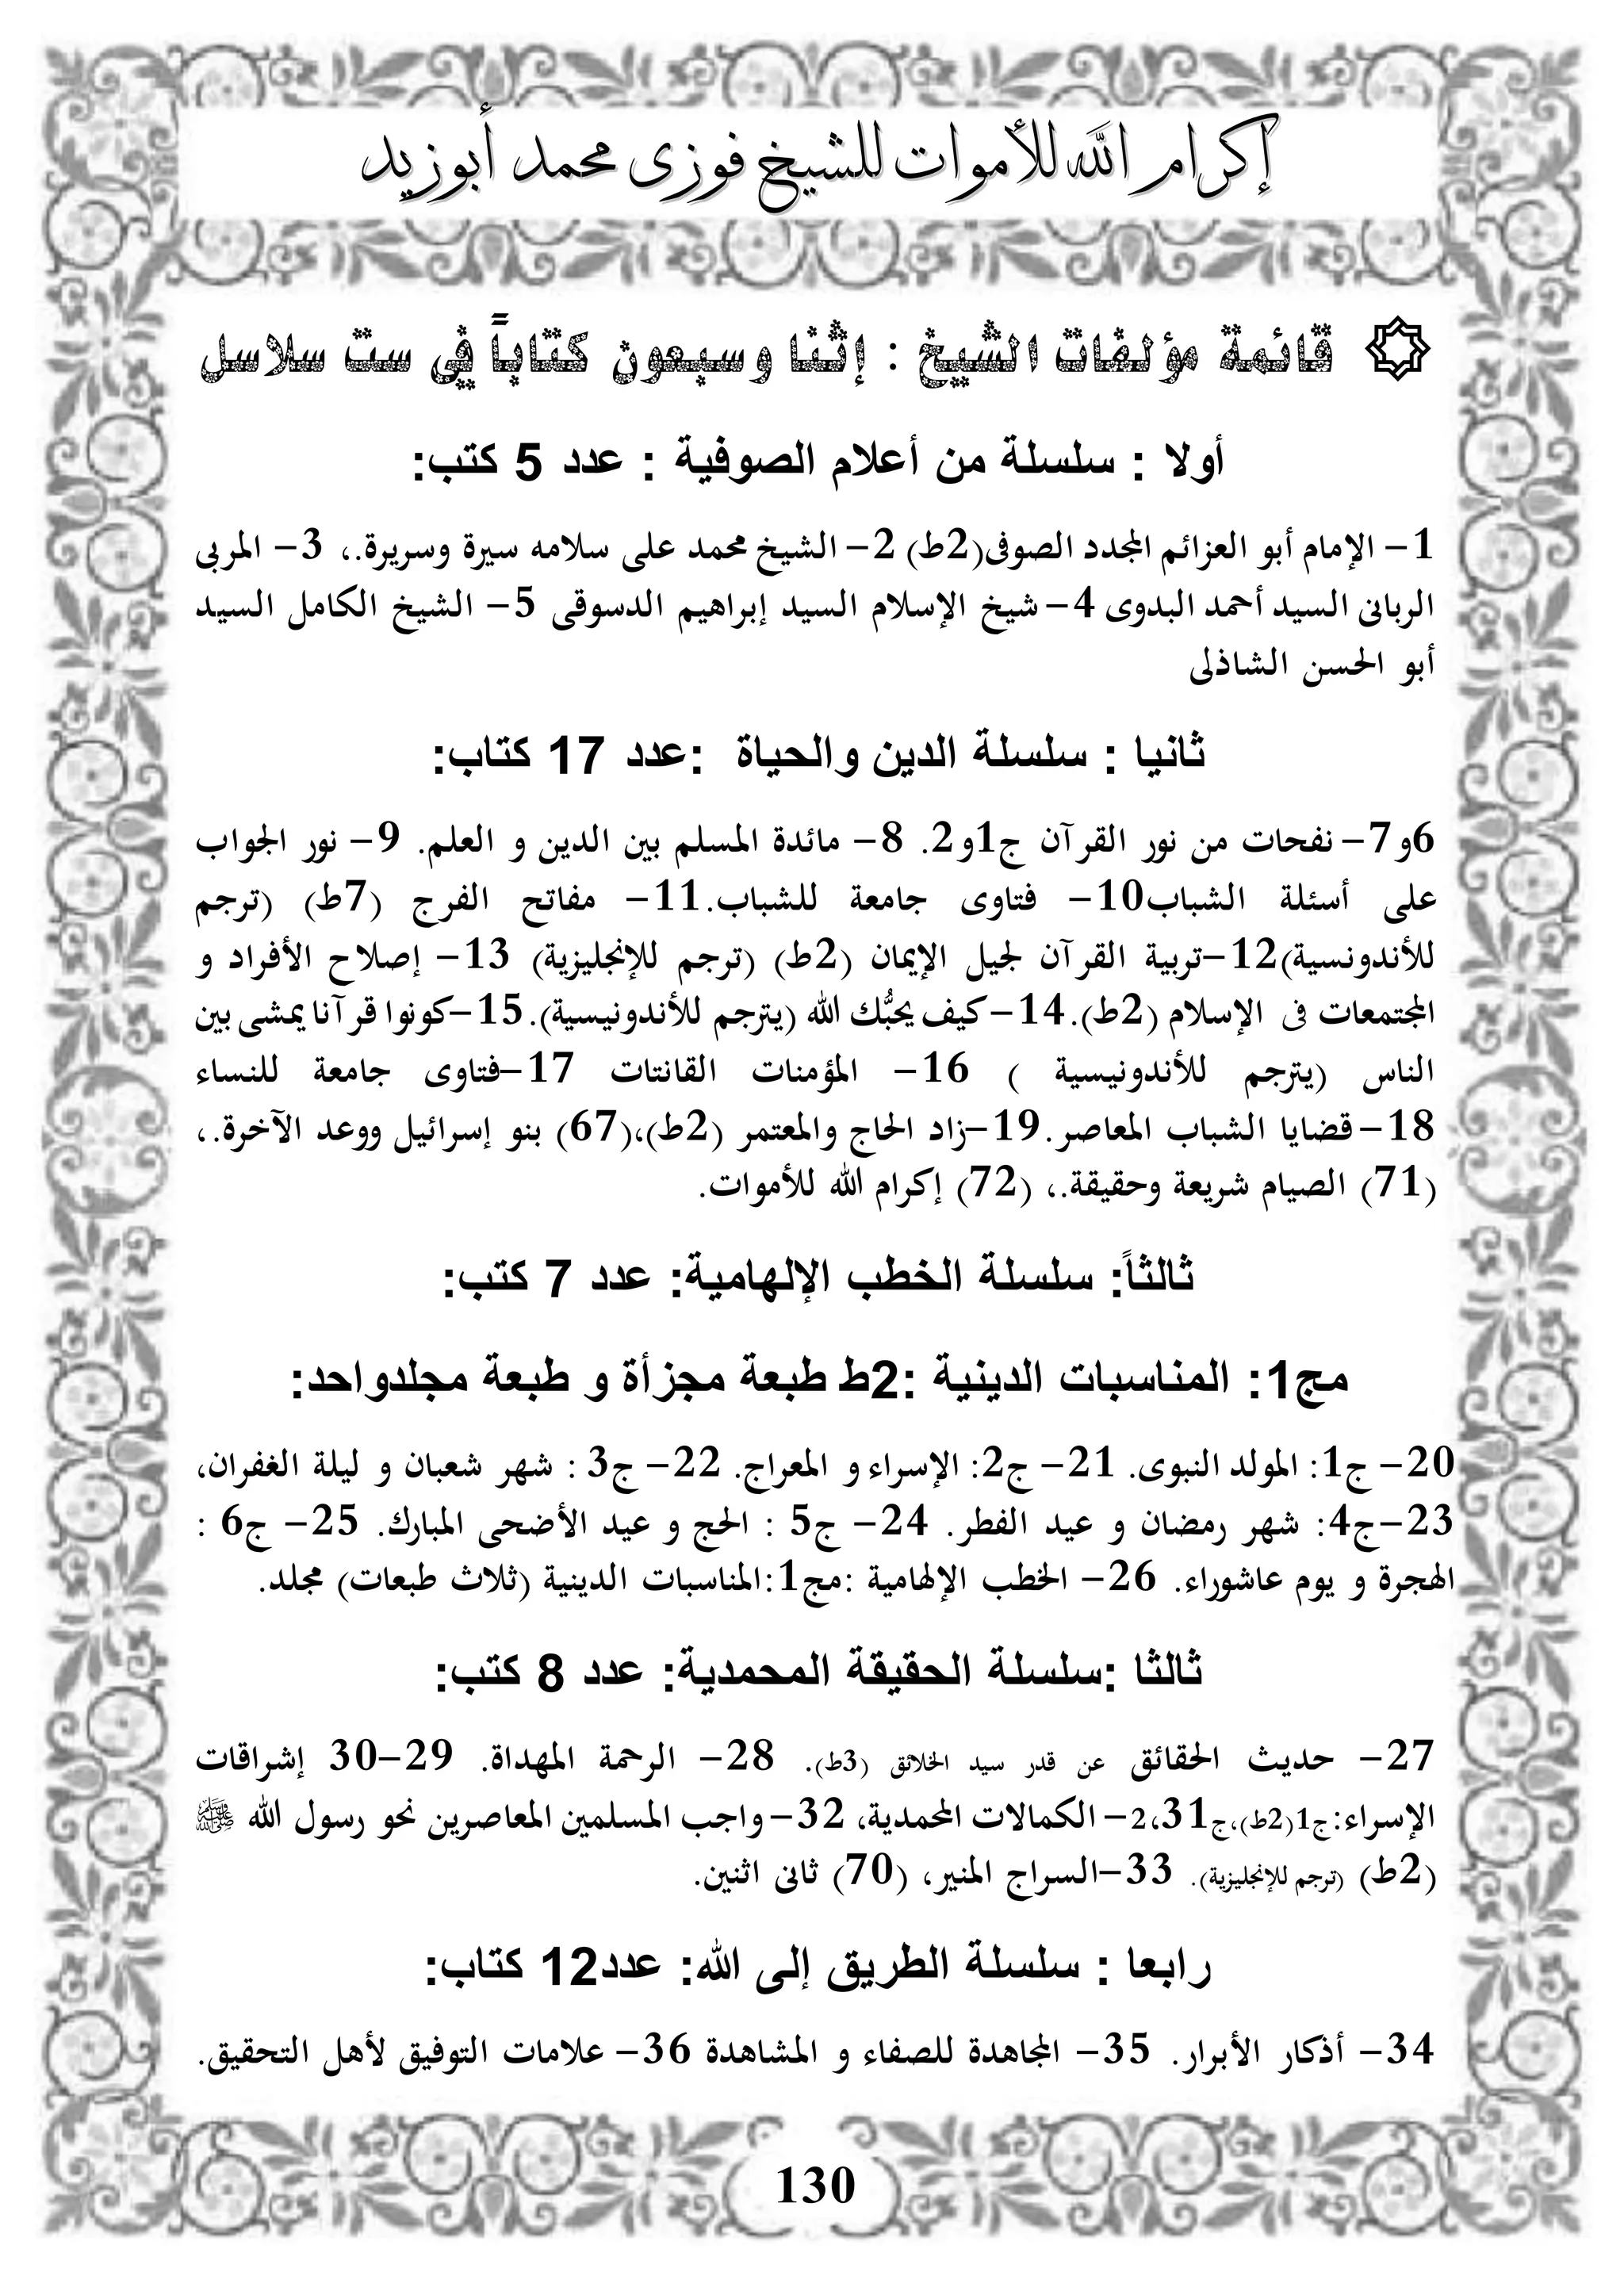 إكرام الله للأموات للشيخ فوزى محمد أبوزيد
۞ قائمة مؤلفات الشيخ : إثنا وسبعون كتاباً فى ست سلاسل
أولا : سلسلة من أعلام الصوفية : عدد 5 كتب:
1- الإمام أبو العزائم المجدد الصوفى(2ط) 2- الشيخ محمد على سلامه سيرة وسريرة.، 3- المربى
الربانى السيد أحمد البدوى 4- شيخ الإسلام السيد إبراهيم الدسوقى 5- الشيخ الكامل السيد
أبو الحسن الشاذلى
ثانيا : سلسلة الدين والحياة :عدد 17 كتاب:
6و7- نفحات من نور القرآن ج1و2. 8- مائدة المسلم بين الدين و العلم. 9- نور الجواب
على أسئلة الشباب10- فتاوى جامعة للشباب.11- مفاتح الفرج (7ط) (ترجم
للأندونسية)12-تربية القرآن لجيل الإيمان (2ط) (ترجم للإنجليزية) 13- إصلاح الأفراد و
المجتمعات فى الإسلام (2ط).14- كيف يحبُّك الله (يترجم للأندونيسية).15-كونوا قرآنا يمشى بين
الناس (يترجم للأندونيسية ) 16- المؤمنات القانتات 17-فتاوى جامعة للنساء
18- قضايا الشباب المعاصر.19-زاد الحاج والمعتمر (2ط)،(67) بنو إسرائيل ووعد الآخرة.،
(71) الصيام شريعة وحقيقة.، (72) إكرام الله للأموات.
ثالثاً: سلسلة الخطب الإلهامية: عدد 7 كتب:
مج1: المناسبات الدينية :2ط طبعة مجزأة و طبعة مجلدواحد:
20- ج1: المولد النبوى. 21- ج2: الإسراء و المعراج. 22- ج3 : شهر شعبان و ليلة الغفران،
23-ج4: شهر رمضان و عيد الفطر. 24- ج5 : الحج و عيد الأضحى المبارك. 25- ج6 :
الهجرة و يوم عاشوراء. 26- الخطب الإلهامية :مج1:المناسبات الدينية (ثلاث طبعات) مجلد.
ثالثا :سلسلة الحقيقة المحمدية: عدد 8 كتب:
27- حديث الحقائق عن قدر سيد الخلائق (3ط). 28- الرحمة المهداة. 29-30 إشراقات
الإسراء:ج1(2ط)،ج2،31- الكمالات المحمدية، 32- واجب المسلمين المعاصرين نحو رسول الله ﷺ
(2ط) (ترجم للإنجليزية). 33-السراج المنير، (70) ثانى اثنين.
رابعا : سلسلة الطريق إلى الله: عدد12 كتاب:
34- أذكار الأبرار. 35- المجاهدة للصفاء و المشاهدة 36- علامات التوفيق لأهل التحقيق.
130